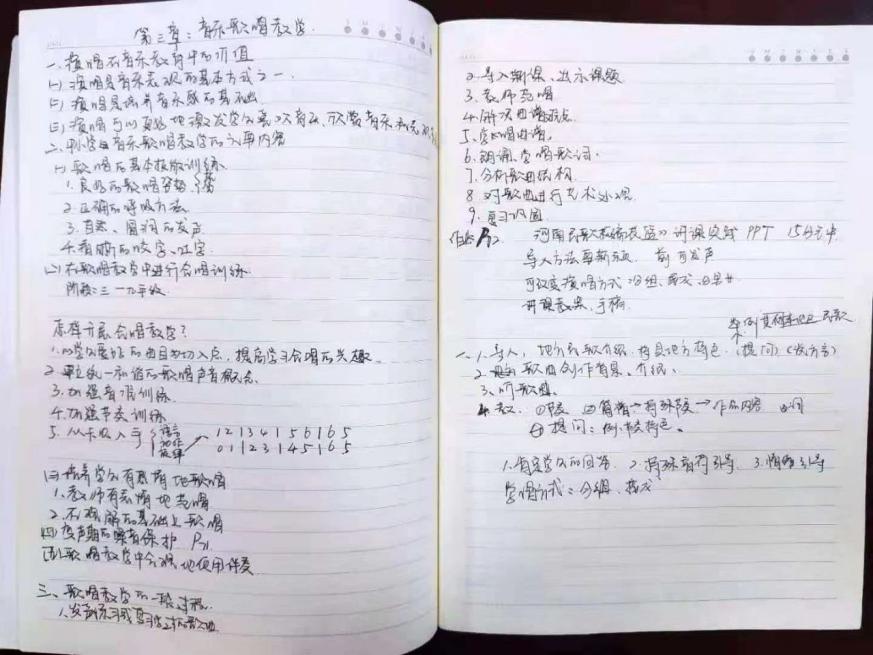 第三章：音乐歌唱教学
一、演唱在音乐教育中的价值
(一) 演唱是音乐表现的基本方式之一.
(二) 演唱是培养音乐感的基础
(三) 演唱可以更好地激发学生喜欢音乐、欣赏音乐和
二、中小学音乐歌唱教学的主要内容
(一) 歌唱的基本技能训练
1. 良好的歌唱姿势
2. 正确的呼吸方法
3. 自然、圆润的发声
4. 清晰的咬字、吐字
(二) 在歌唱教学中进行合唱训练
阶段：三—九年级
怎样开展合唱教学？
1. 以学生喜好的曲目为切入点，提高学习合唱的兴趣.
2. 建立统一和谐的歌唱声音概念.
3. 加强音准训练
4. 加强节奏训练
5. 从卡农入手 1 2 1 3 4 1 5 6 1 6 5
0 1 1 2 3 1 4 5 1 6 5
(三) 培养学生有表情地歌唱
1. 教师有表情地范唱
2. 在理解的基础上歌唱
(四) 变声期的嗓音保护
(五) 歌唱教学中合理地使用伴奏
三、歌唱教学的一般过程
1. 发声练习或复习学过的歌曲
2. 导入新课、出示课题
3. 教师范唱
4. 解决曲谱难点
5. 学唱曲谱。
6. 朗诵、学唱歌词.
7. 分析歌曲结构
8. 对歌曲进行艺术处理
9. 复习巩固
作业 河南民歌《编花篮》讲课实践 PPT 15分钟
导入方法要新颖. 前 发声
可改变演唱方式：分组、男女
讲课教案、手稿
举例 民歌
一、1. 导入，地方民歌介绍、持具地方特色、(提问) (说方言)
2. 歌曲创作背景、介绍、
3. 听歌曲.
4. 教：① 节奏 ② 简谱→特殊节奏→作品内容 ③ 词
④ 提问：例：节奏特色。
1. 肯定学生的回答 2. 特殊音符引导 3. 情绪引导
学唱方式：分组、男女